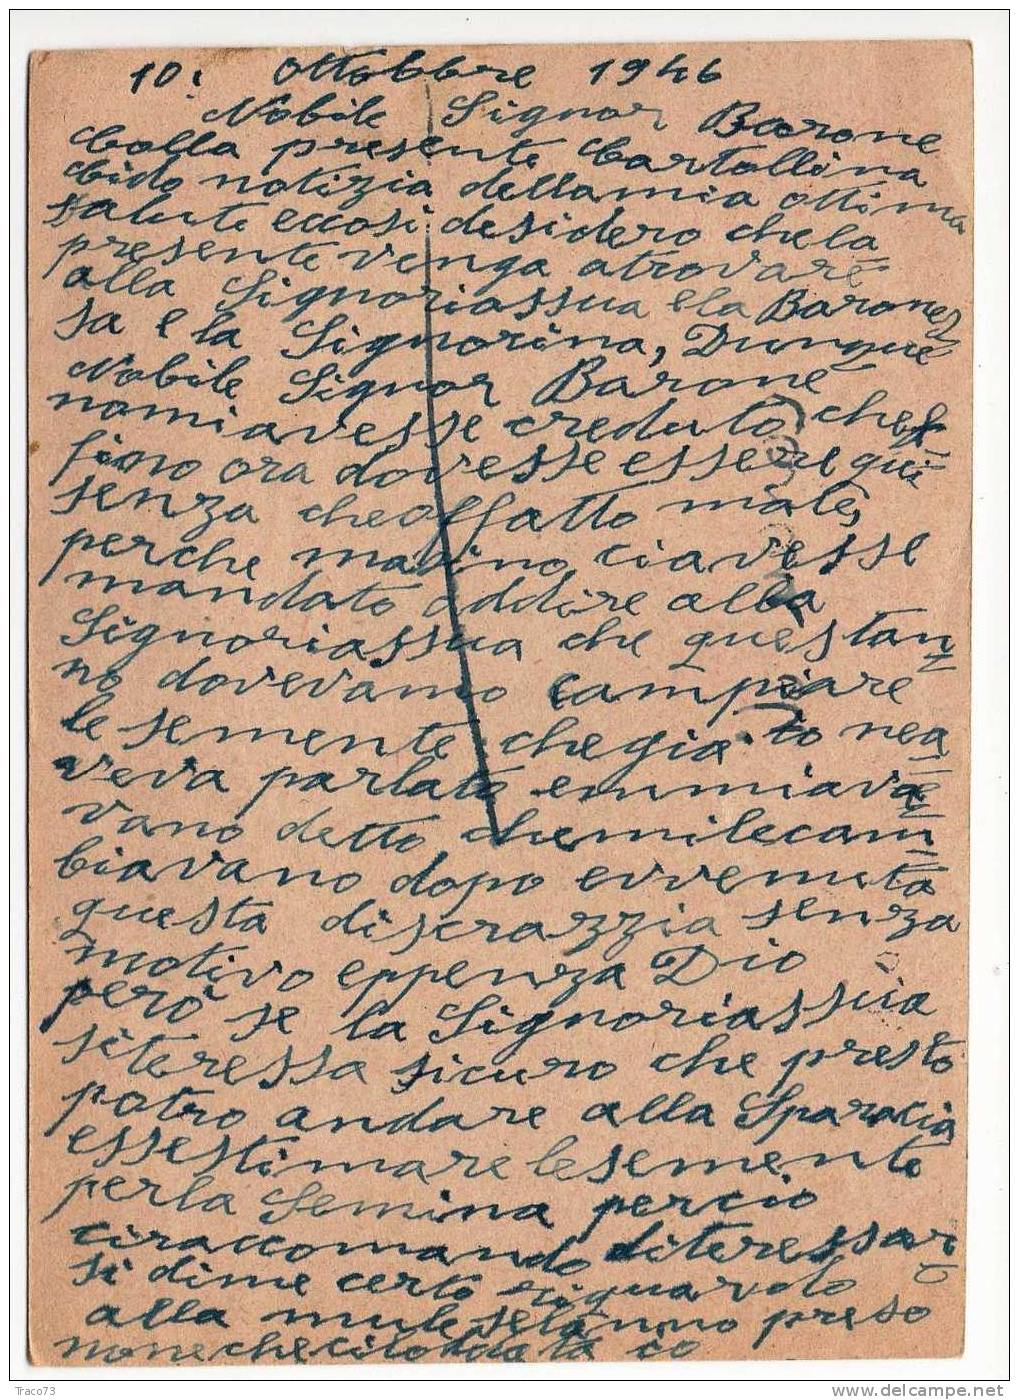 10: Ottobbre 1946
Nobile Signor Barone
Colla presente Cartollina
Cido notizia dellamia ottima
salute eccosi desidero chela
presente venga atrovare
alla Signoriassua ela Barones
sa e la Signorina, Dunque
Nobile Signor Barone
nomiavesse creduto che
fino ora dovesse essere qui
senza cheoffatto male,
perche mativo ciavesse
mandato addire alla
Signoriassua che questan
no dovevamo campiare
le semente chegia io nea
veva parlato emmiava
vano detto chemilecam
biavano dopo evvenuta
questa discrazzia senza
motivo eppenza Dio
però se la Signoriassua
siteressa sicuro che presto
potro andare alla Sparacia
essestimare lesemente
perla Semina percio
ciraccomando diteressar
si dime certo riguardo
alla mule selanno preso
noneche cilo data io
Traco73
www.delcampe.net